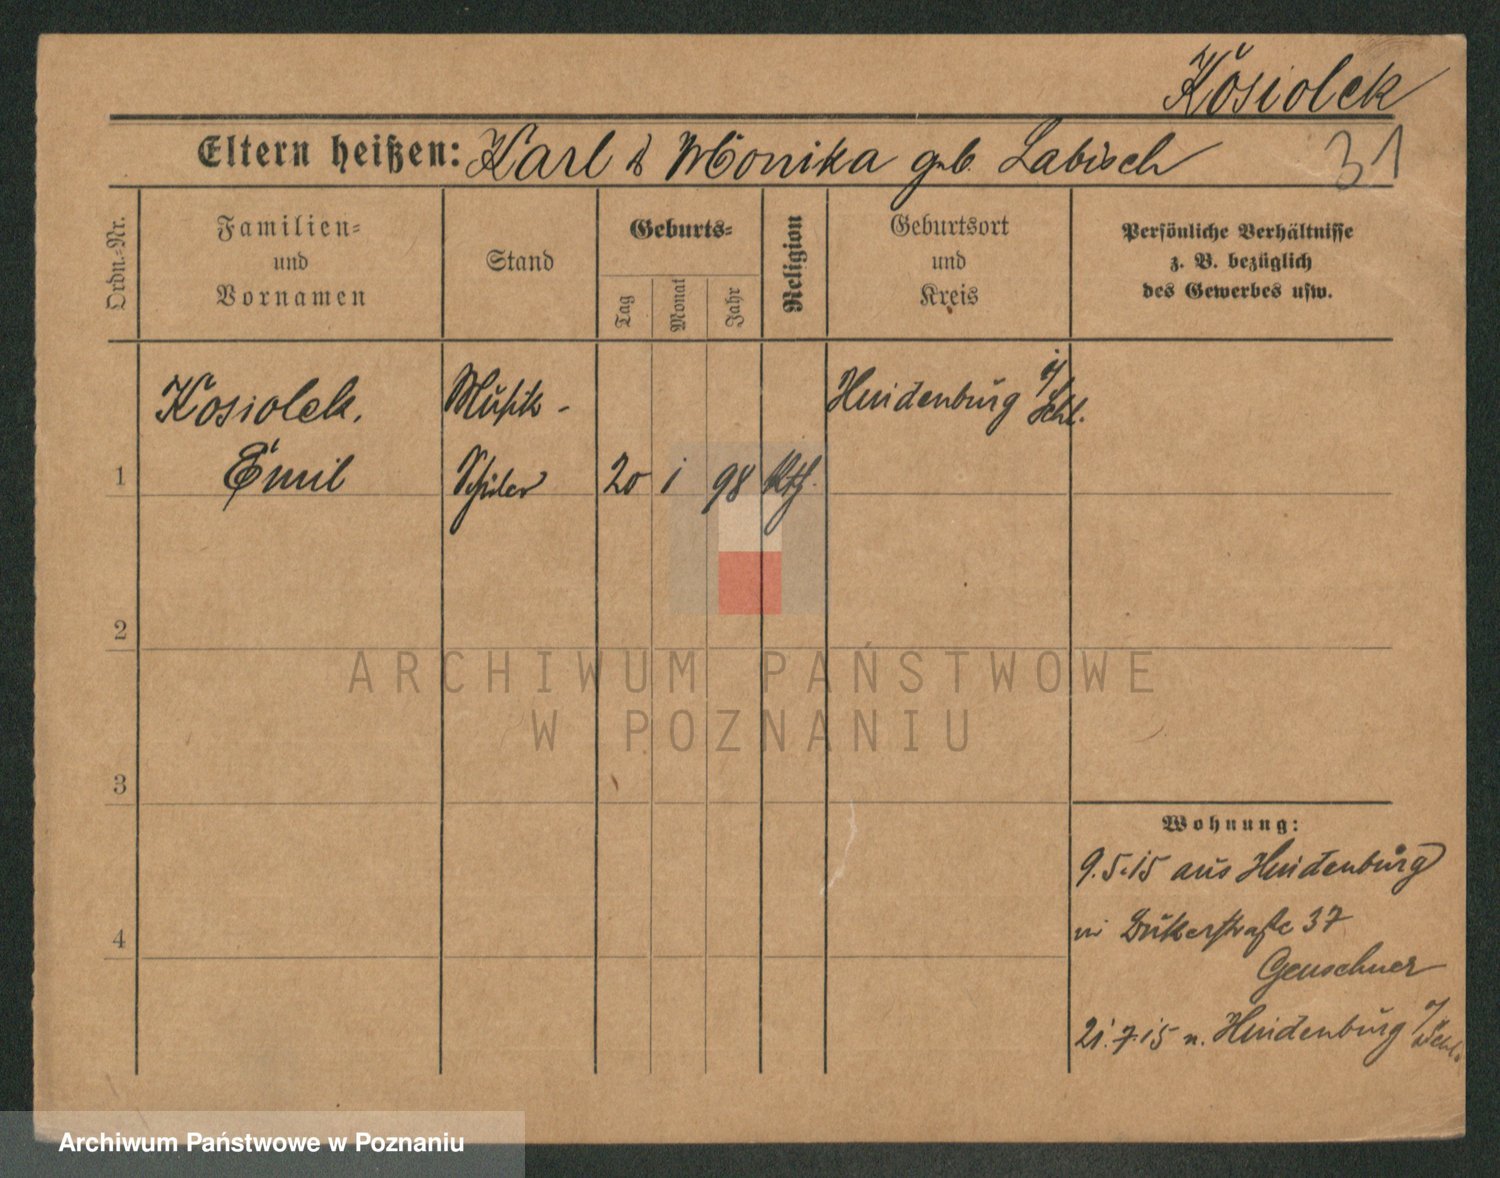 Kosiolek
Eltern heißen: Karl & Monika geb. Labisch
31
Ordn.-Nr.
Familien-
und
Vornamen
Stand
Geburts-
Tag
Monat
Jahr
Religion
Geburtsort
und
Kreis
Persönliche Verhältnisse
z. B. bezüglich
des Gewerbes usw.
Kosiolek, Musik-
1 Emil Schüler 20 1 98 kth.
2
ARCHIWUM PAŃSTWOWE
W POZNANIU
3
Wohnung:
9.5.15 aus
4
37
21.7.15 n.
Archiwum Państwowe w Poznaniu